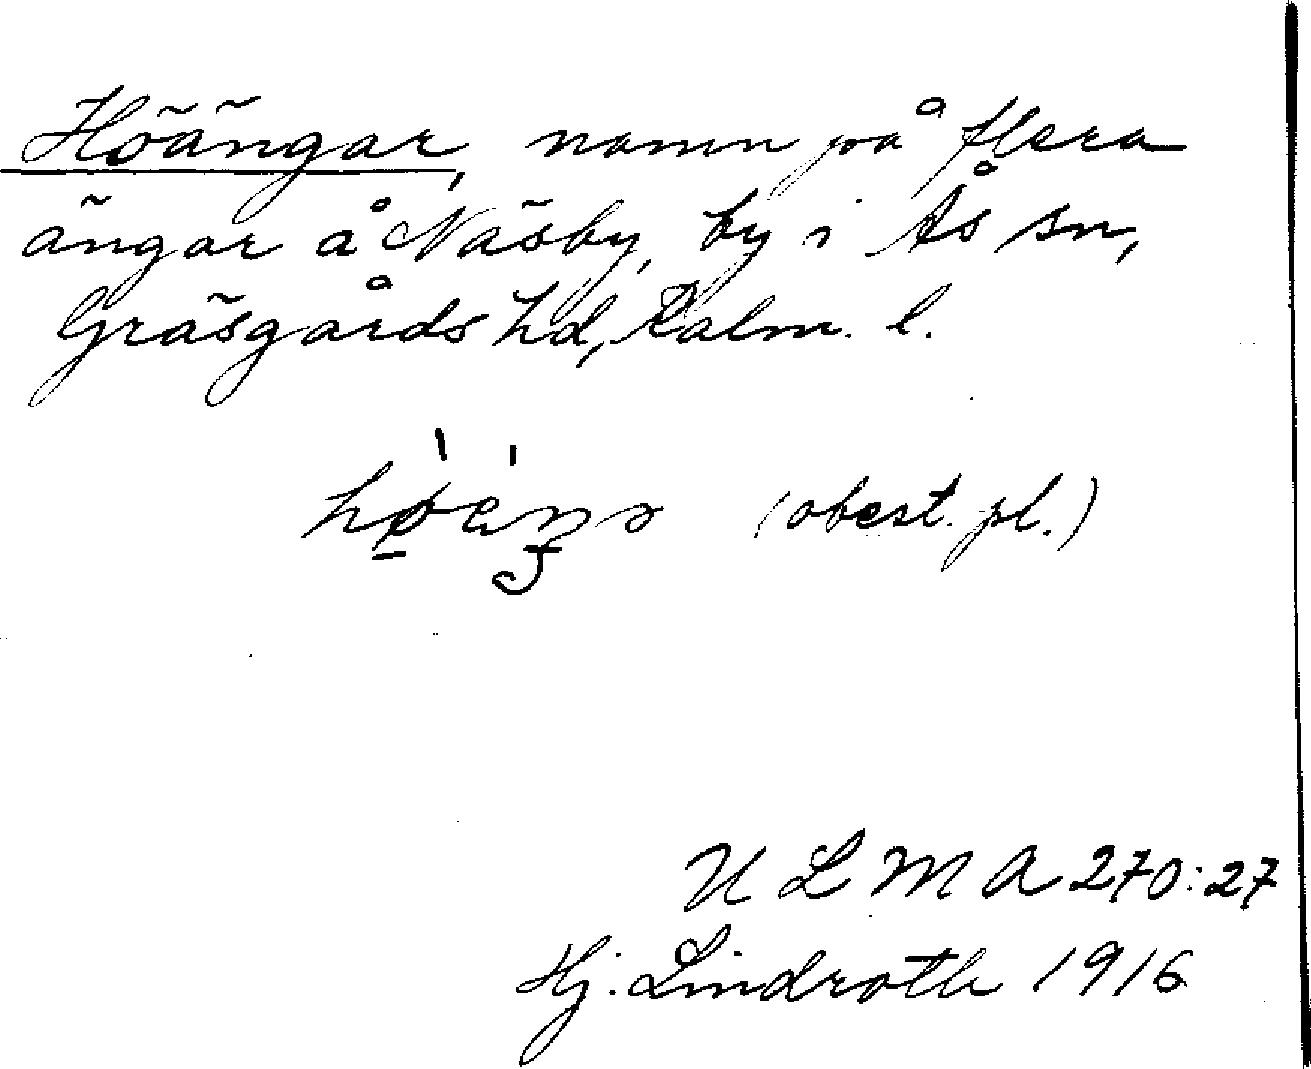 Höängar, namn på flera
ängar å Näsby, by i Ås sn,
Gräsgårds hd, Kalm. l.
(obest. pl.)
U L M A 270:27
Hj. Lindroth 1916